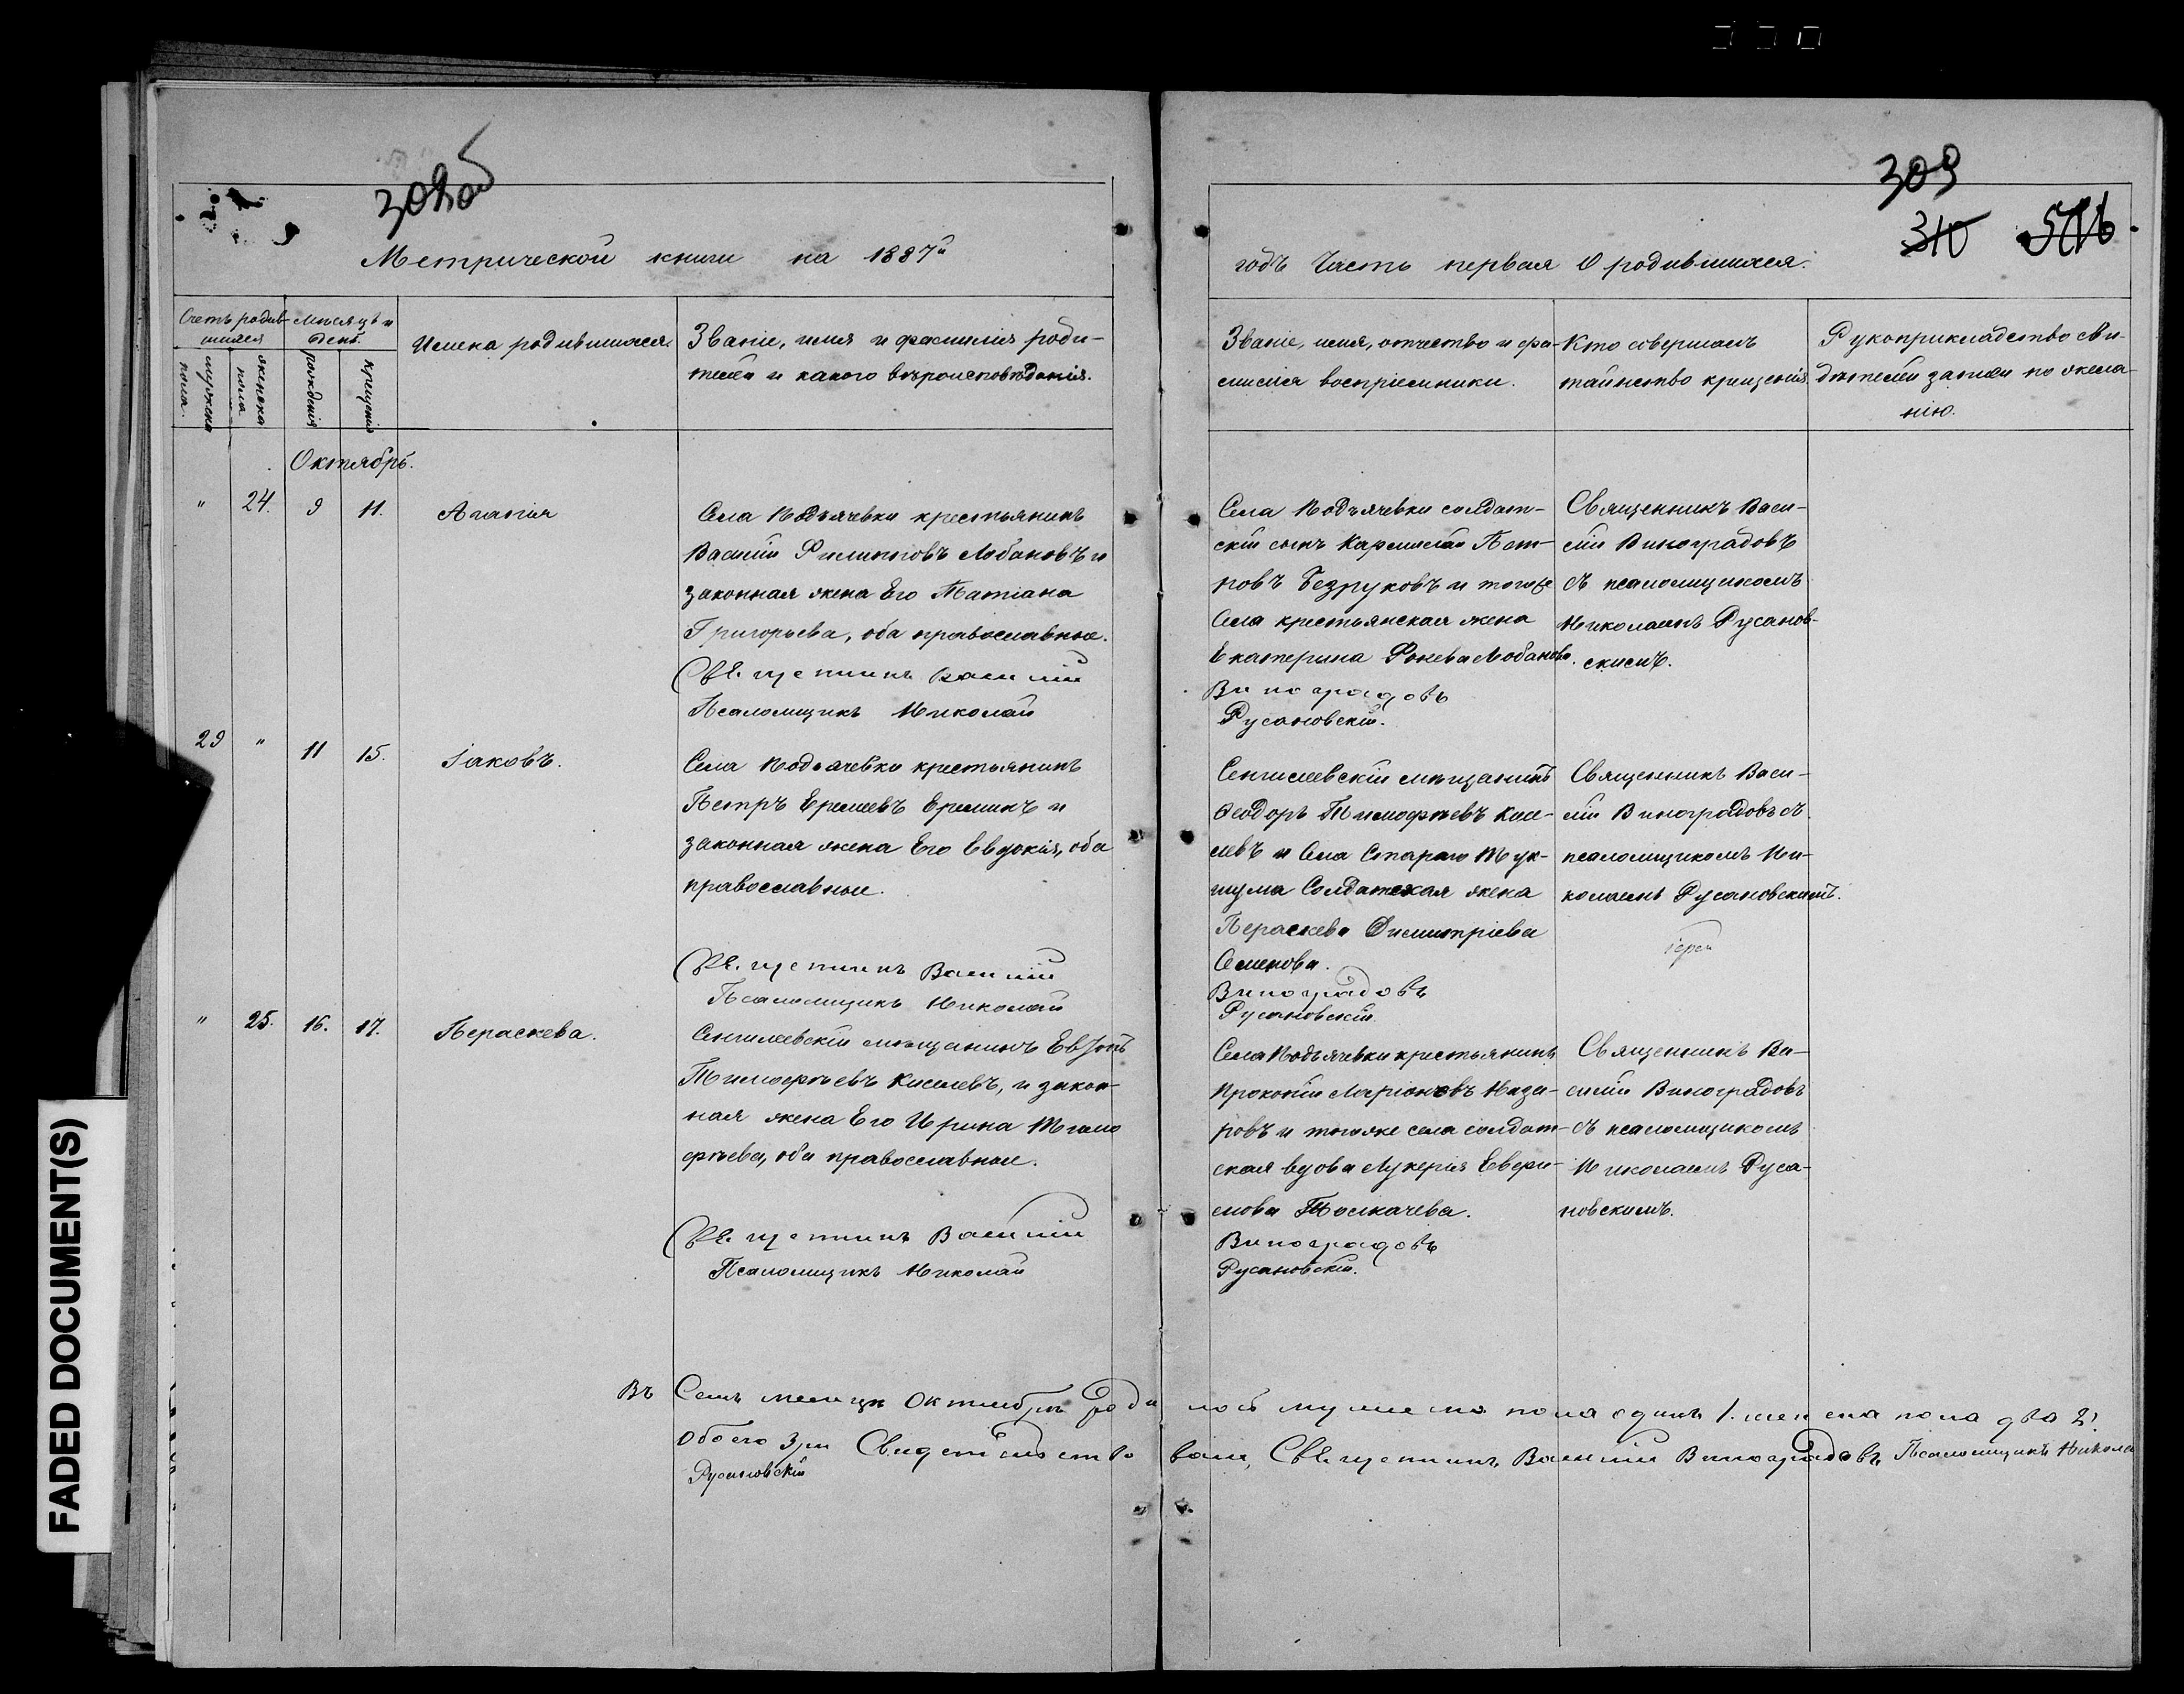 309
310
Метрической книги на 1887й
годъ Часть первая О родившихся.
Счетъ родив-
шихся
Мѣсяцъ и
день.
Имена родившихся.
Званіе, имя и фамилія роди-
телей и какого вѣроисповѣданія.
Званіе, имя, отчество и фа-
милія воспріемники.
Кто совершалъ
таинство крещенія.
Рукоприкладство сви-
дѣтелей записи по жела-
нію.
мужеска
пола.
женска
пола
рожденія
крещенія
Октябрь.
" 24. 9 11. Агапія
Села Подъячевки крестьянинъ
Василій Филипповъ Лобановъ и
законная жена Его Татіана
Григорьева, оба православные.
Священникъ Василій
Псаломщикъ Николай
Села Подъячевки солдат-
скій сынъ Кармилай Пет-
ровъ Безруковъ и тогоже
Села крестьянская жена
Екатерина Фокева Лобанова.
Виноградовъ
Русановскій.
Священникъ Васи-
лій Виноградовъ
съ псаломщикомъ
Николаемъ Русанов-
скимъ.
29 " 11 15. Іаковъ.
Села Подъячевки крестьянинъ
Петръ Еремеевъ Ереминъ и
законная жена Его Евдокія, оба
православные.
Священникъ Василій
Псаломщикъ Николай
Сенгилеевскій мѣщанинъ
Ѳеодоръ Тимофѣевъ Кисе-
левъ и Села Стараго Тук-
шума Солдатская жена
Параскева Димитріева
Семенова.
Виноградовъ
Русановскій
Священникъ Васи-
лій Виноградовъ съ
псаломщикомъ Ни-
колаемъ Русановскимъ.
" 25. 16. 17. Параскева.
Сенгилеевскій мѣщанинъ
Тимофѣевъ Киселевъ, и закон-
ная жена Его Ирина Тимо
фѣева, оба православные.
Священникъ Василій
Псаломщикъ Николай
Села Подъячевки крестьянинъ
Прокопій Ларіоновъ Наза-
ровъ и тогоже села солдат-
ская вдова Лукерія Евфи-
мова Толкачева.
Виноградовъ
Русановскій.
Священникъ Ва-
силій Виноградовъ
съ псаломщикомъ
Николаемъ Руса-
новскимъ.
Въ Семъ месяцѣ Октябрѣ Роди лось мужеска пола одинъ 1. женска пола два 2.
Обоего 3ри Свидетельство вали, Священникъ Василій Виноградовъ Псаломщикъ Никола
Русановскій
FADED DOCUMENT(S)